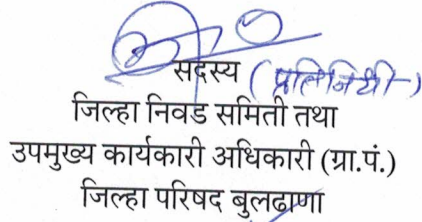 सदस्य (प्रतिनिधी)
जिल्हा निवड समिती तथा
उपमुख्य कार्यकारी अधिकारी (ग्रा.पं.)
जिल्हा परिषद बुलढाणा